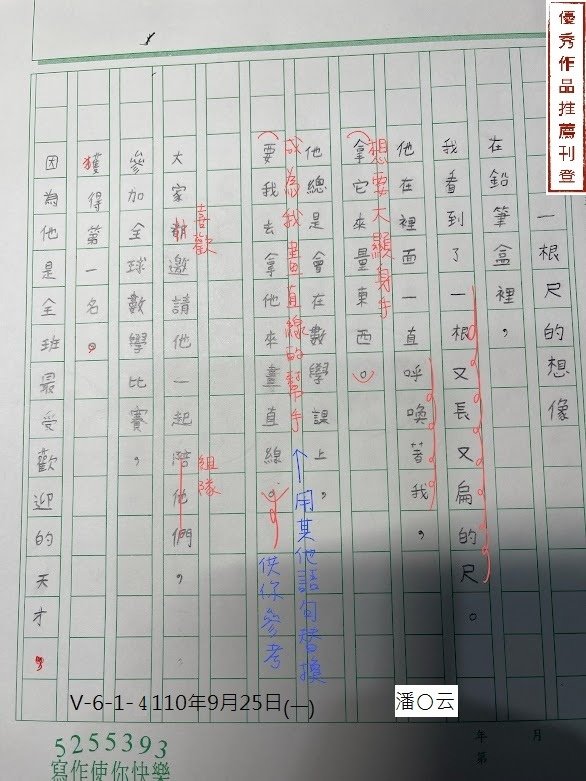 優秀作品推薦刊登
一根尺的想像
在鉛筆盒裡，
我看到了一根又長又扁的尺。
他在裡面一直呼喚著我，
想要大顯身手
（拿它來量東西。）
他總是會在數學課上，
成為我畫直線的幫手
（要我去拿他來畫直線。）
↑用其他語句替換
供你參考
喜歡
大家都邀請他一起陪他們，
組隊
參加全球數學比賽，
獲得第一名。
因為他是全班最受歡迎的天才，
V-6-1-4110年9月25日(一)
潘〇云
年 月
第
5255393
寫作使你快樂